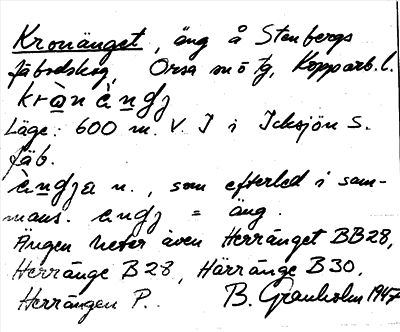 Kronänget, äng å Stenbergs
fäbodskog, Orsa sn ö tg, Kopparb. l.
kràn è̱ndʒ
Läge: 600 m. V. I i Icksjön S.
fäb.
è̱ndʒa n., som efterled i sam-
mans. endʒ = äng.
Ängen heter även Herränget BB28,
Herränge B28, Härränge B30,
Herrängen P. B. Granholm 1947